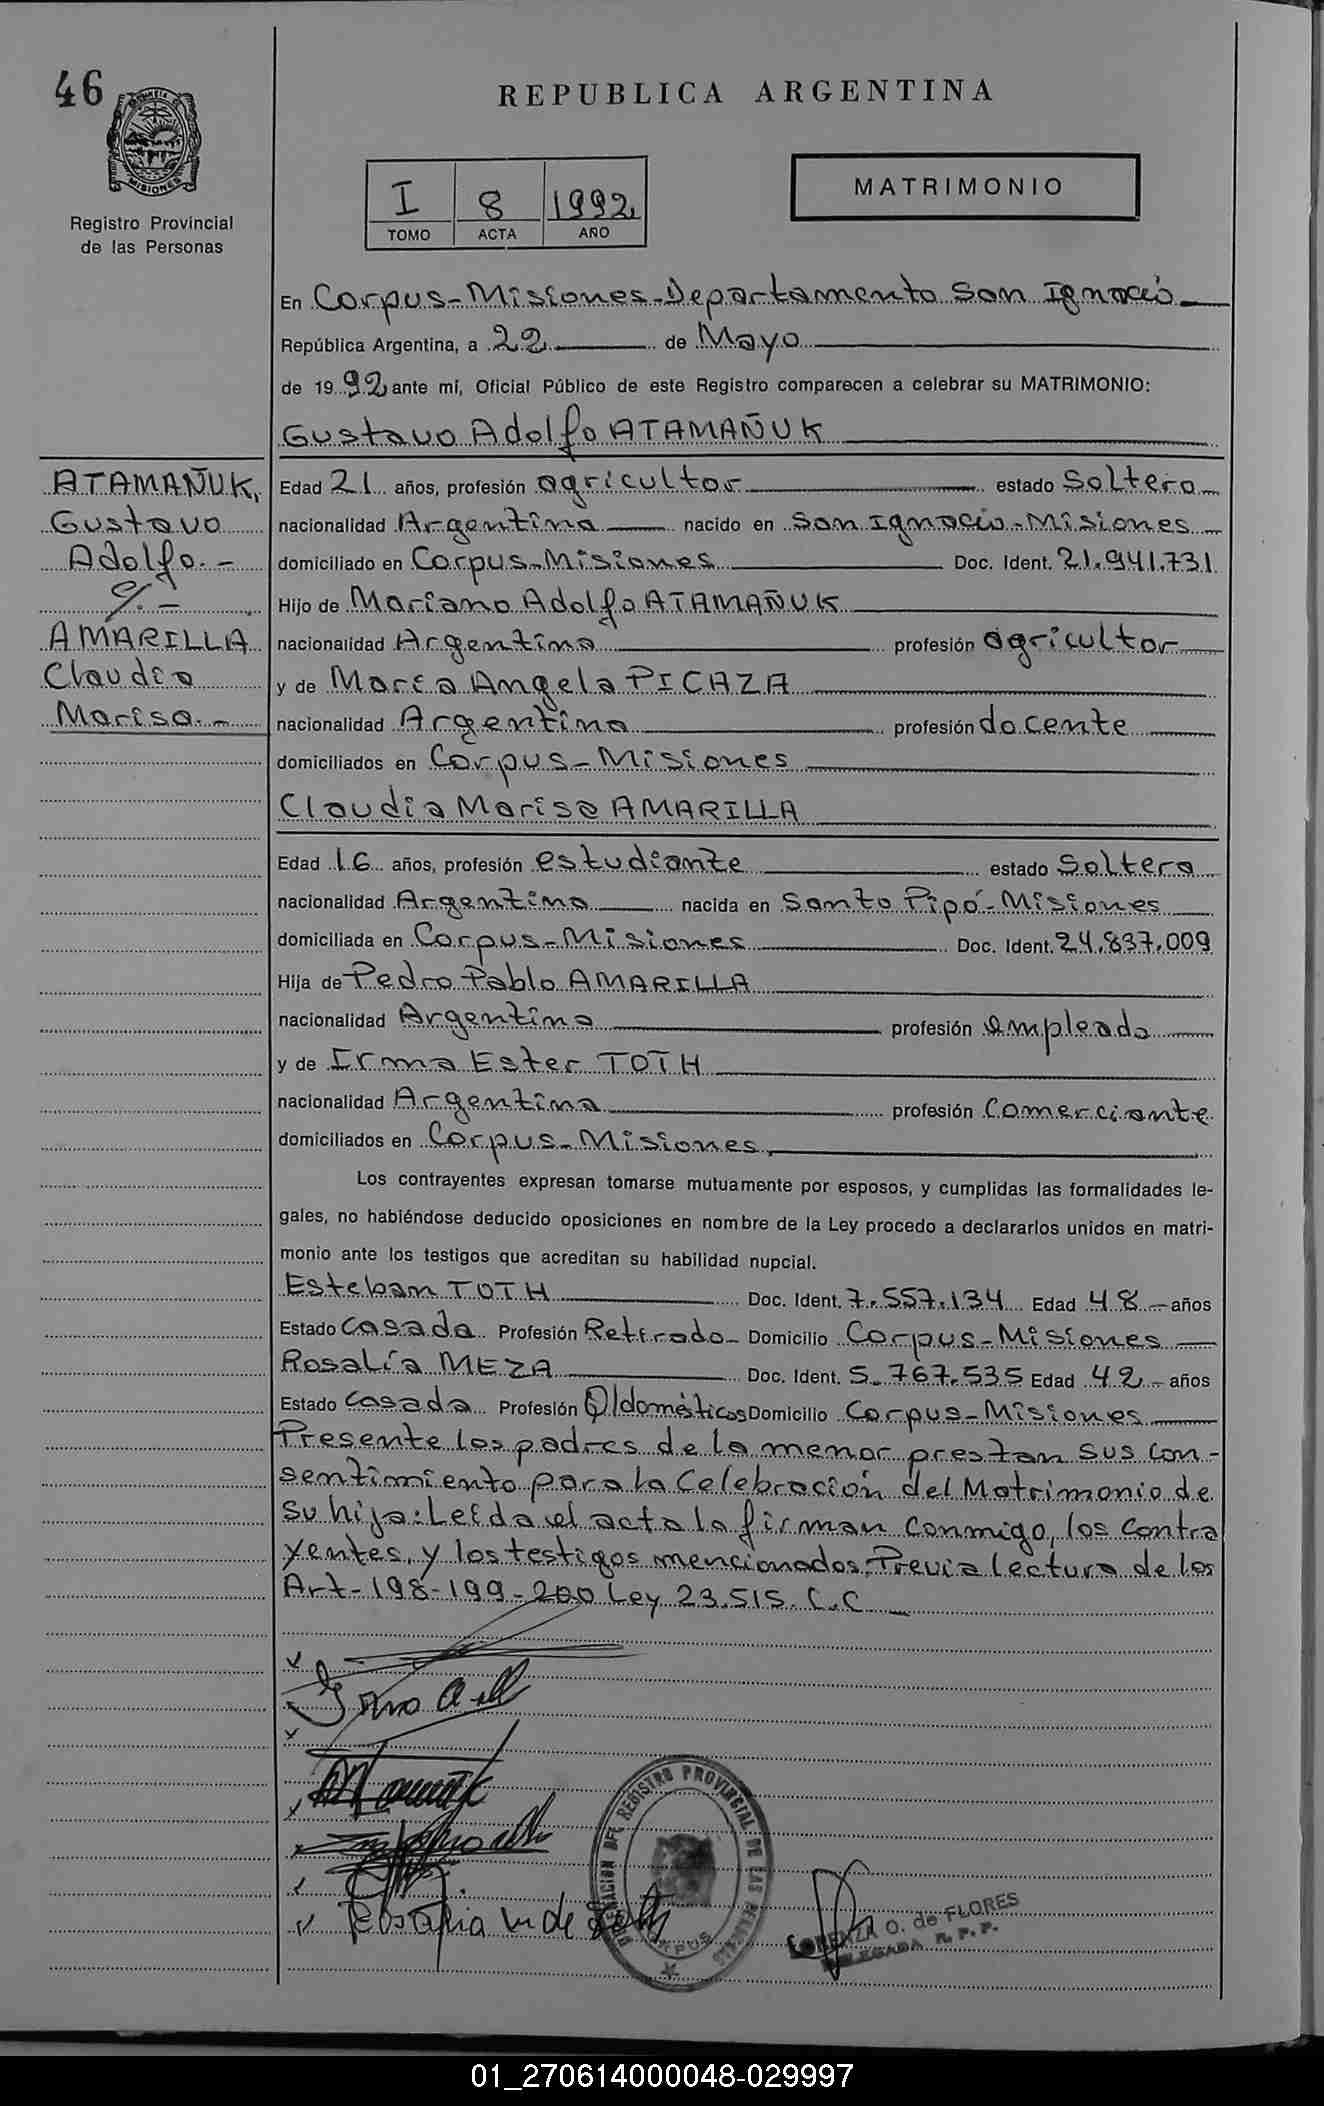 46
REPUBLICA ARGENTINA
MISIONES
Registro Provincial
de las Personas
I 8 1992
TOMO ACTA AÑO
MATRIMONIO
En Corpus-Misiones-Departamento San Ignacio
República Argentina, a 22 de Mayo
de 1992 ante mí, Oficial Público de este Registro comparecen a celebrar su MATRIMONIO:
Gustavo Adolfo ATAMAÑUK
ATAMAÑUK,
Gustavo
Adolfo.-
AMARILLA
Claudia
Marisa.-
Edad 21 años, profesión agricultor estado Soltero
nacionalidad Argentina nacido en San Ignacio-Misiones
domiciliado en Corpus-Misiones Doc. Ident. 21.941.731
Hijo de Mariano Adolfo ATAMAÑUK
nacionalidad Argentina profesión agricultor
y de María Angela PICAZA
nacionalidad Argentina profesión docente
domiciliados en Corpus-Misiones
Claudia Marisa AMARILLA
Edad 16 años, profesión estudiante estado Soltera
nacionalidad Argentina nacida en Santo Pipó-Misiones
domiciliada en Corpus-Misiones Doc. Ident. 24.837.009
Hija de Pedro Pablo AMARILLA
nacionalidad Argentina profesión empleado
y de Irma Ester TOTH
nacionalidad Argentina profesión Comerciante
domiciliados en Corpus-Misiones,
Los contrayentes expresan tomarse mutuamente por esposos, y cumplidas las formalidades le-
gales, no habiéndose deducido oposiciones en nombre de la Ley procedo a declararlos unidos en matri-
monio ante los testigos que acreditan su habilidad nupcial.
Esteban TOTH Doc. Ident. 7.557.134 Edad 48 años
Estado Casada Profesión Retirado Domicilio Corpus-Misiones
Rosalía MEZA Doc. Ident. 5.767.535 Edad 42 años
Estado Casada Profesión Q/domésticos Domicilio Corpus-Misiones
Presente los padres de la menor prestan sus con-
sentimiento para la Celebración del Matrimonio de
su hija: Leída el acta la firman conmigo, los contra
yentes, y los testigos mencionados. Previa lectura de los
Art-198-199-200 Ley 23.515. C.C
REGISTRO PROVINCIAL DE LAS PERSONAS
CORPUS
LORENZA O. de FLORES
DELEGADA R. P. P.
01_270614000048-029997